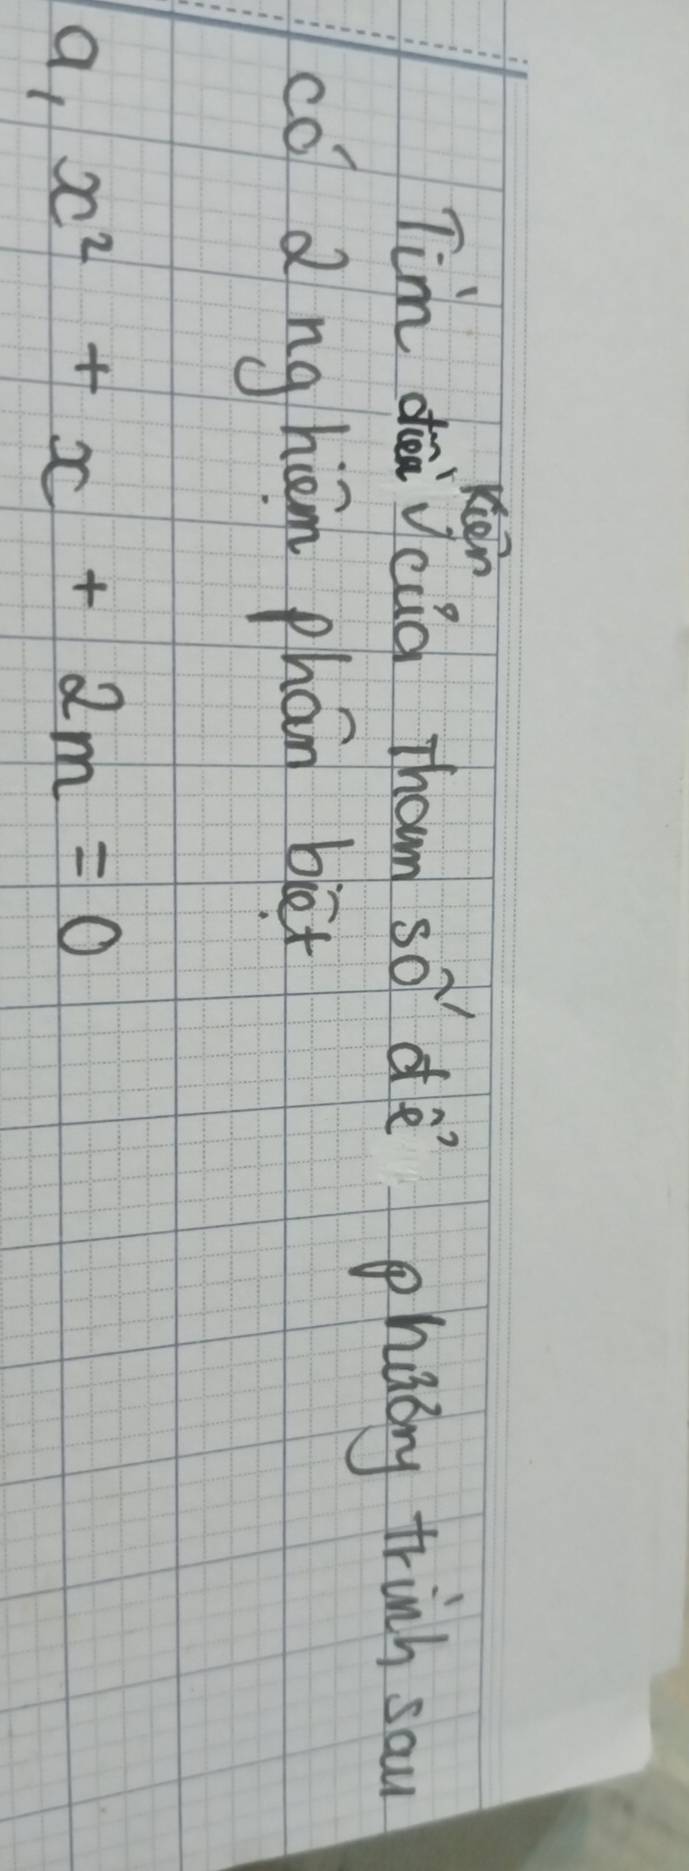 Tìm điều kiện của tham số để phương trình sau
có 2 nghiệm phân biệt
a, x² + x + 2m = 0